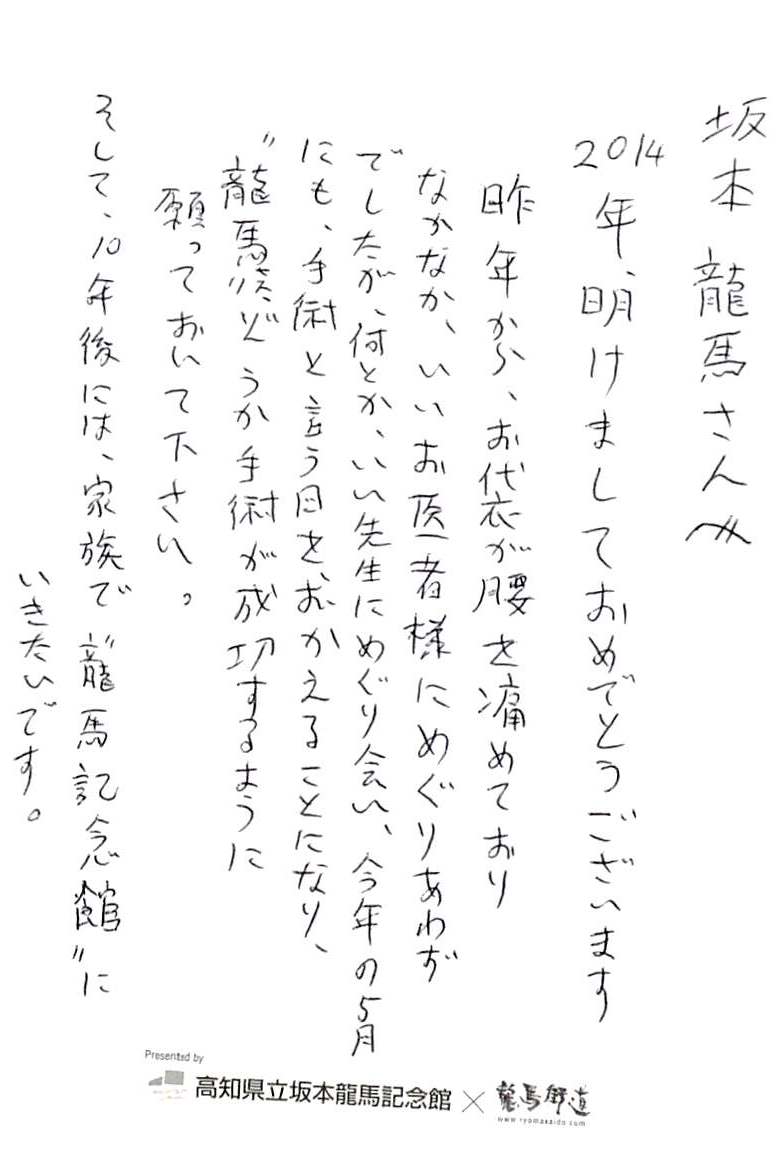 坂本 龍馬さんへ
2014年、明けましておめでとうございます
昨年から、お代衣が腰を痛めており
なかなか、いいお医者様にめぐりあわず
でしたが、何とか、いい先生にめぐり会い、今年の5月
にも、手術と言う日を、おかえることになり、
〝龍馬さんどうか手術が成功するように
願っておいて下さい。
そして、10年後には、家族で〝龍馬記念館〟に
いきたいです。
Presented by
高知県立坂本龍馬記念館×龍馬街道
www.ryomakaido.com